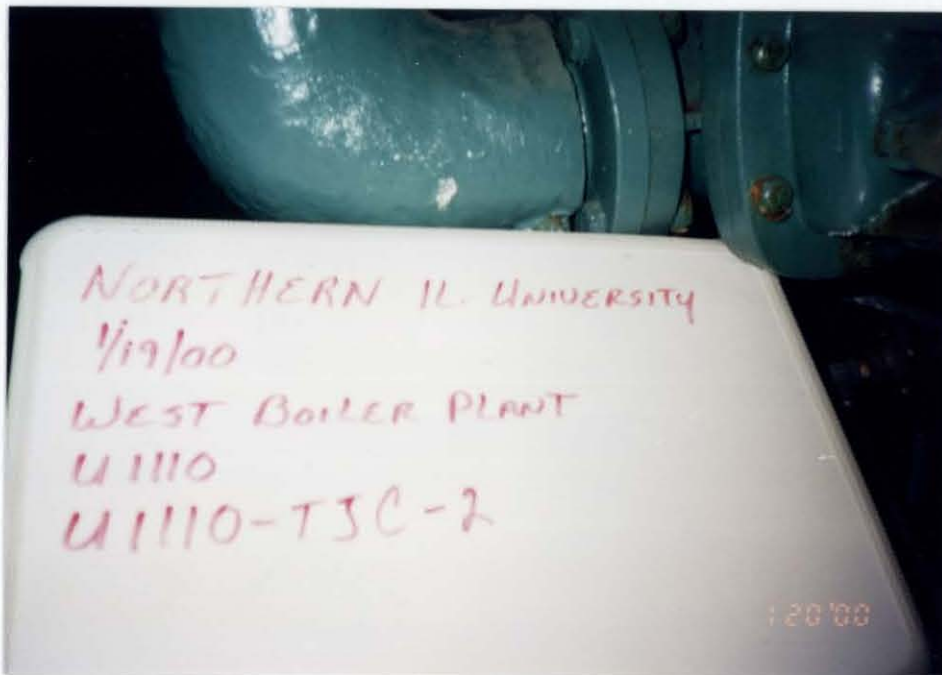 NORTHERN IL. UNIVERSITY
1/19/00
WEST BOILER PLANT
U1110
U1110-TJC-2
1 20 '00